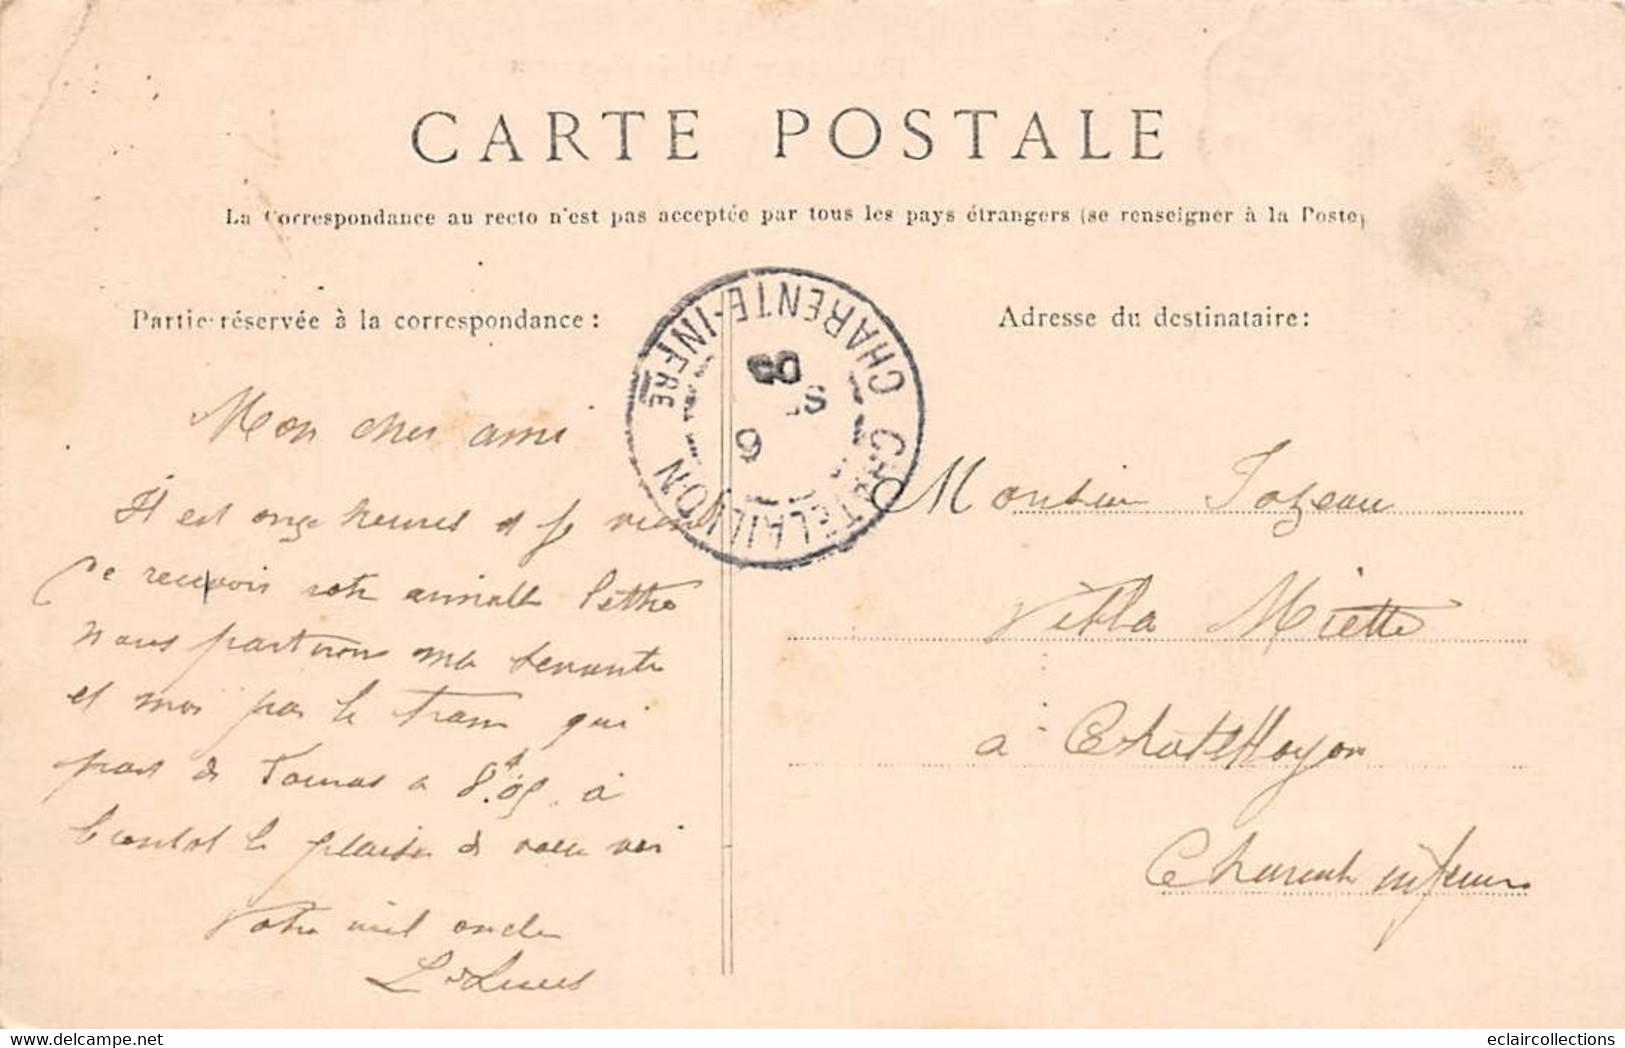 CARTE POSTALE
La Correspondance au recto n'est pas acceptée par tous les pays étrangers (se renseigner à la Poste)
Partie réservée à la correspondance:
Adresse du destinataire:
CHATELAILLON
CHARENTE-INFRE
Mon cher ami
Il est onze heures et je viens
de recevoir votre amiable lettre
nous partirons ma servante
et moi par le tram qui
part de à 8h05. à
bientot le plaisir de vous voir
Votre oncle
Monsieur Jozeau
Villa Miette
à Chatellayon
Charente inferieure
eclaircollections